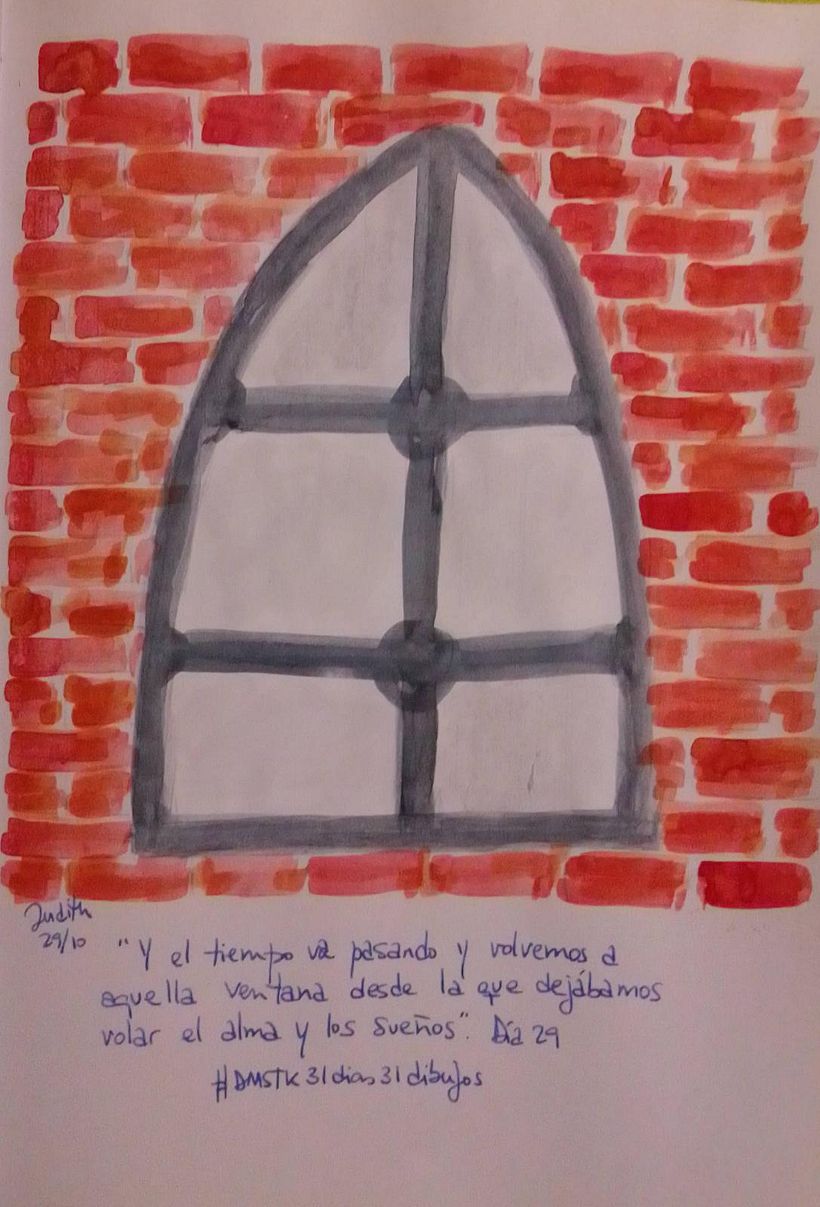 Judith
29/10
"Y el tiempo va pasando y volvemos a
aquella ventana desde la que dejábamos
volar el alma y los sueños". Día 29
#DMSTK31dias31dibujos